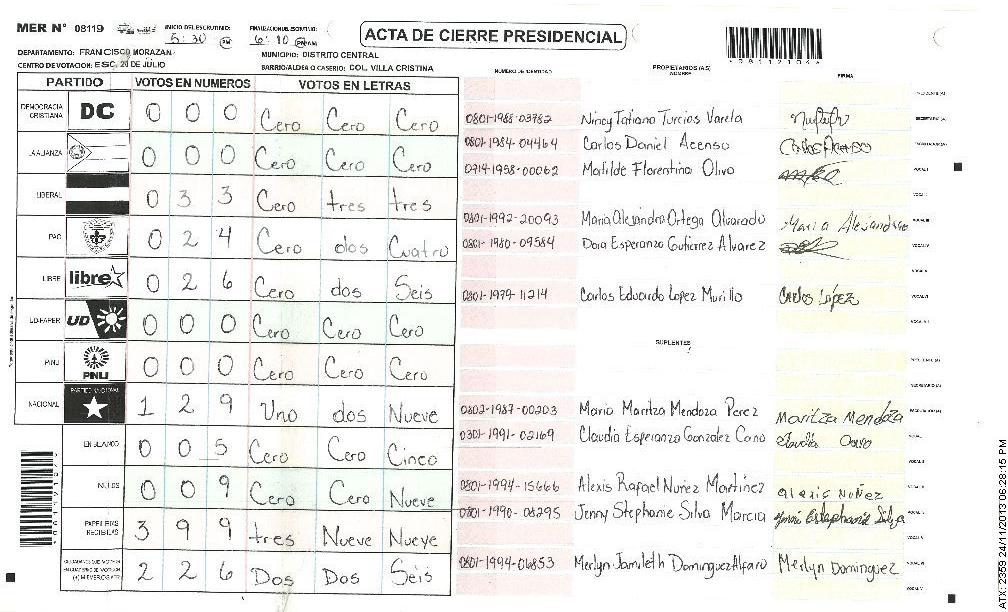 MER Nº 08119
INICIO DEL ESCRUTINIO: 5:30 PM
FINALIZACION DEL ESCRUTINIO: 6:10 PM AM
ACTA DE CIERRE PRESIDENCIAL
DEPARTAMENTO: FRANCISCO MORAZAN
MUNICIPIO: DISTRITO CENTRAL
CENTRO DE VOTACION: ESC. 20 DE JULIO
BARRIO/ALDEA O CASERIO: COL. VILLA CRISTINA
PARTIDO VOTOS EN NUMEROS VOTOS EN LETRAS
DEMOCRACIA CRISTIANA DC 0 0 0 Cero Cero Cero
LA ALIANZA 0 0 0 Cero Cero Cero
LIBERAL 0 3 3 Cero tres tres
PAC 0 2 4 Cero dos Cuatro
LIBRE libre 0 2 6 Cero dos Seis
UD-FAPER UD 0 0 0 Cero Cero Cero
PINU PINU 0 0 0 Cero Cero Cero
NACIONAL PARTIDO NACIONAL 1 2 9 Uno dos Nueve
EN BLANCO 0 0 5 Cero Cero Cinco
NULOS 0 0 9 Cero Cero Nueve
PAPELETAS RECIBIDAS 3 9 9 tres Nueve Nueve
2 2 6 Dos Dos Seis
NUMERO DE IDENTIDAD PROPIETARIOS (AS) NOMBRE FIRMA
PRESIDENTE (A)
0801-1988-03782 Nincy Tatiana Turcios Varela SECRETARIO (A)
0801-1984-04464 Carlos Daniel Acenso Carlos Acenso ESCRUTADOR (A)
0714-1958-00062 Matilde Florentina Olivo VOCAL I
VOCAL II
0801-1992-20093 Maria Alejandra Ortega Alvarado Maria Alejandra VOCAL III
0801-1980-09584 Dora Esperanza Gutierrez Alvarez VOCAL IV
VOCAL V
0801-1979-11214 Carlos Eduardo Lopez Murillo Carlos López VOCAL VI
VOCAL VII
SUPLENTES
PRESIDENTE (A)
SECRETARIO (A)
0802-1987-00203 Maria Maritza Mendoza Perez Maritza Mendoza ESCRUTADOR (A)
0301-1991-02169 Claudia Esperanza Gonzalez Cano Claudia Cano VOCAL I
VOCAL II
0801-1994-15666 Alexis Rafael Nuñez Martínez alexis Nuñez VOCAL III
0801-1990-06295 Jenny Stephanie Silva Marcia VOCAL IV
VOCAL V
0801-1994-06853 Merlyn Jamileth Dominguez Alfaro Merlyn Dominguez VOCAL VI
ATX: 2359 24/11/2013 06:28:15 PM